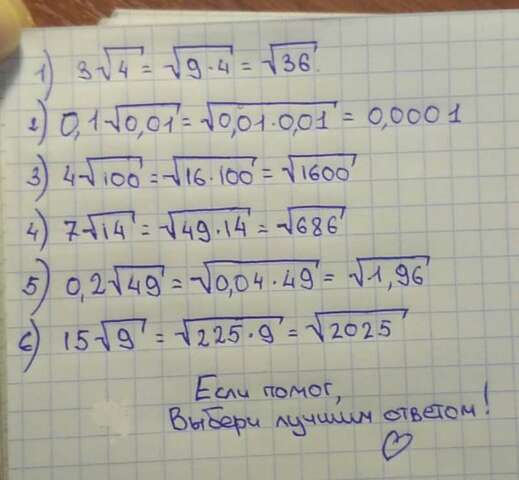 1) 3√4 = √9·4 = √36
2) 0,1√0,01 = √0,01·0,01 = 0,0001
3) 4√100 = √16·100 = √1600
4) 7√14 = √49·14 = √686
5) 0,2√49 = √0,04·49 = √1,96
6) 15√9 = √225·9 = √2025
Если помог,
Выбери лучшим ответом!
♡